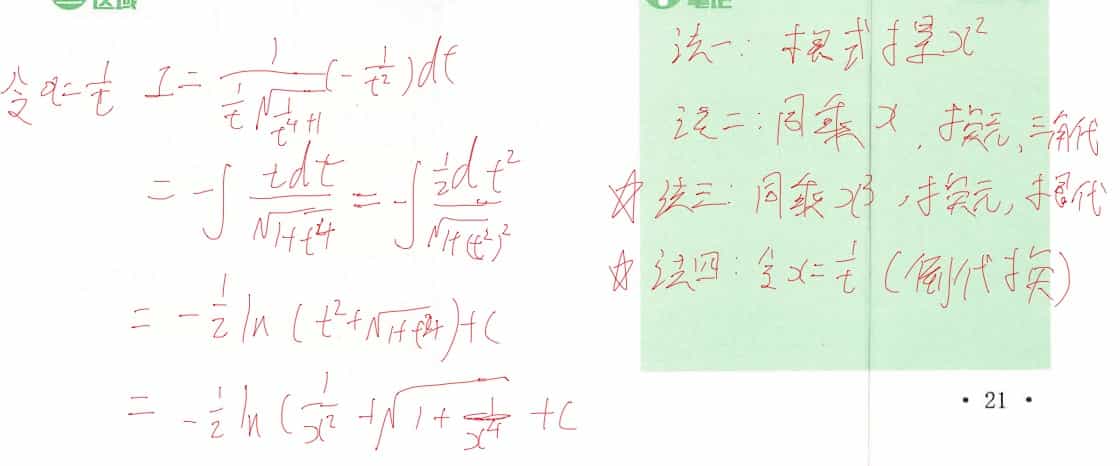 区域
笔记
令x=1/t I=1/(1/t √(1/t⁴+1)) (-1/t²)dt
= -∫ tdt/√(1+t⁴) = -∫ ½dt²/√(1+(t²)²)
= -½ ln(t²+√(1+t⁴))+C
= -½ ln(1/x²+√(1+1/x⁴) +C
法一:根式提x²
法二:同乘x,换元,三角代
☆法三:同乘x³,换元,根代
☆法四:令x=1/t(倒代换)
· 21 ·